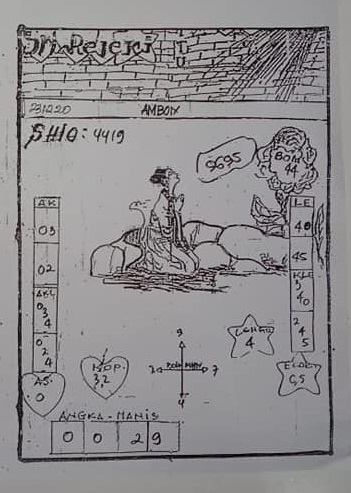 Sri Rejeki
231220 AMBOIX
SHIO: 4419
9695
BOM
44
AK
03
02
ABL
0
3
4
0
2
4
AS
0
LE
40
45
KLE
9
40
2
4
5
KOP
3,2
9
3
7
4
4
ANGKA-MANIS
0 0 2 9